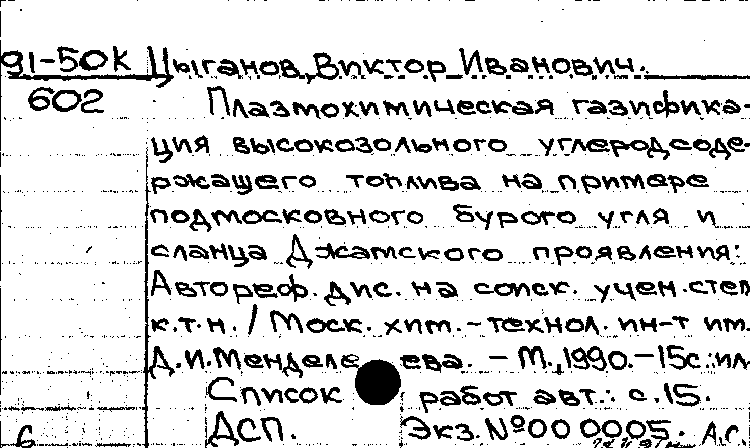 91-50К Цыганов, Виктор Иванович.
602 Плазмохимическая газифика-
ция высокозольного углеродсоде-
ржащего топлива на примере
подмосковного бурого угля и
сланца Джамского проявления:
Автореф. дис. на соиск. учен. степ
к.т.н. / Моск. хим.-технол. ин-т им.
Д.И.Менделеева. – М., 1990.-15с.:ил
Список работ авт.: с.15.
6 ДСП. Экз.№00 0005.